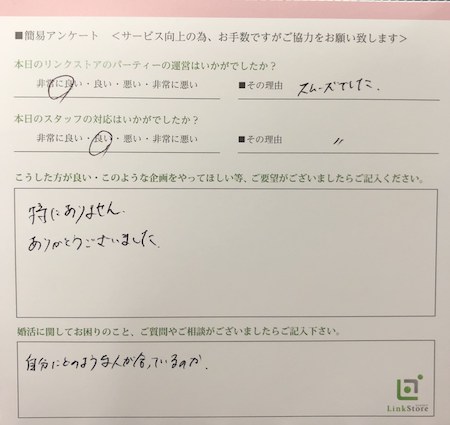 ■簡易アンケート ＜サービス向上の為、お手数ですがご協力をお願い致します＞
本日のリンクストアのパーティーの運営はいかがでしたか？
非常に良い・良い・悪い・非常に悪い ■その理由 スムーズでした.
本日のスタッフの対応はいかがでしたか？
非常に良い・良い・悪い・非常に悪い ■その理由 〃
こうした方が良い・このような企画をやってほしい等、ご要望がございましたらご記入ください。
特にありません.
ありがとうございました.
婚活に関してお困りのこと、ご質問やご相談がございましたらご記入下さい。
自分にどのような人が合っているのか.
LinkStore